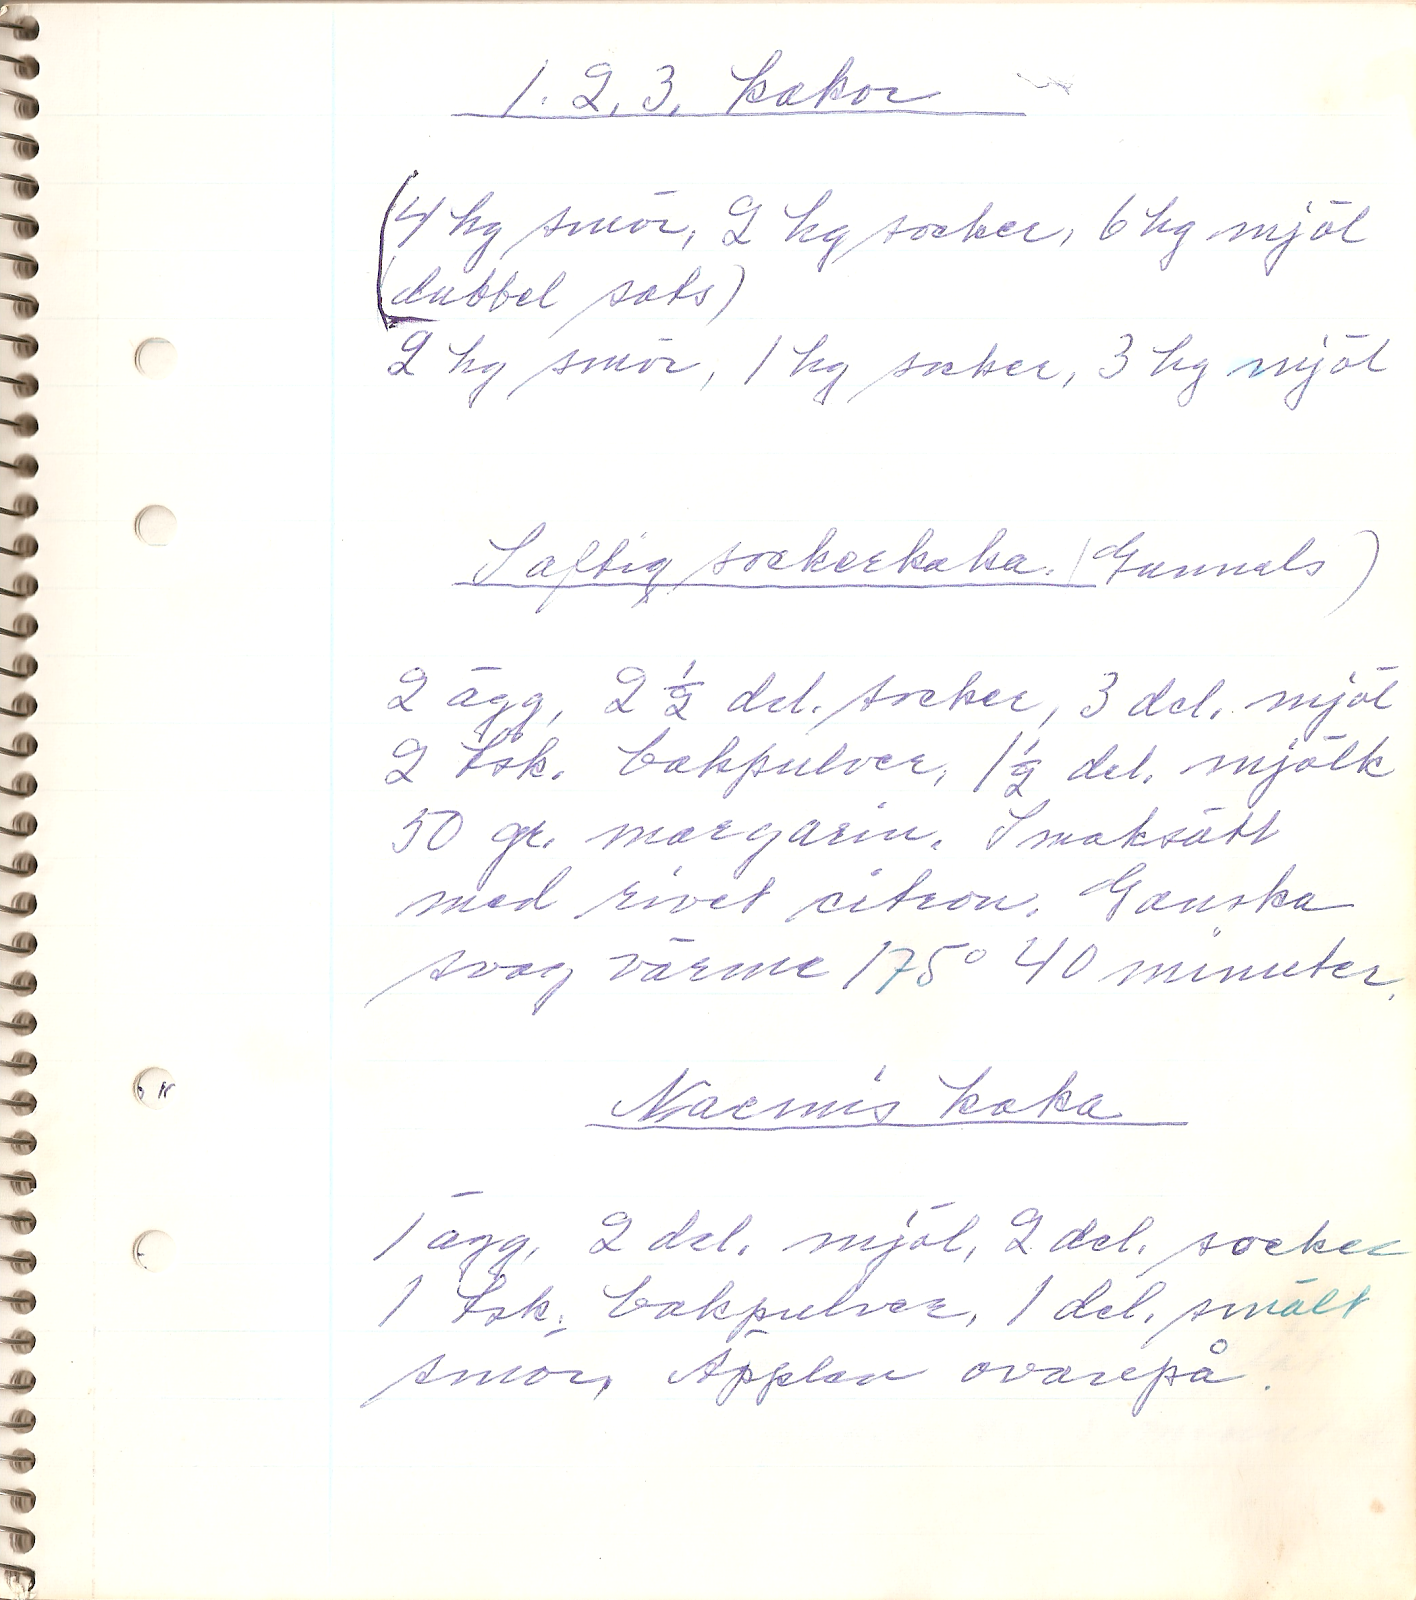 1. 2, 3, kakor
(4 kg smör, 2 kg socker, 6 kg mjöl
dubbel sats)
2 kg smör, 1 kg socker, 3 kg mjöl
Saftig sockerkaka. (Gunnels)
2 ägg, 2 1/2 del. socker, 3 del. mjöl
2 tsk. bakpulver, 1 1/2 del. mjölk
50 gr. margarin. Smaksätt
med rivet citron. Ganska
svag värme 175° 40 minuter.
Naemis kaka
1 ägg, 2 del. mjöl, 2 del. socker
1 tsk. bakpulver, 1 del. smält
smör, Äpplen ovanpå.